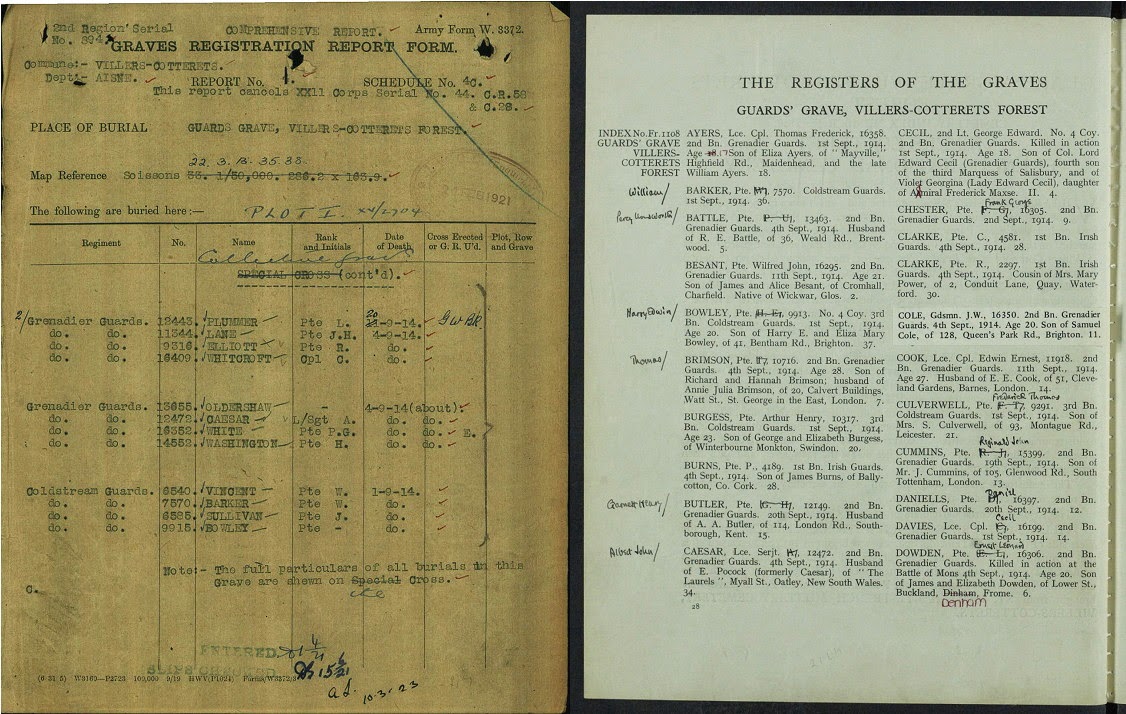 2nd Region Serial
No. 394
COMPREHENSIVE REPORT.
Army Form W. 3372.
GRAVES REGISTRATION REPORT FORM.
Commune:- VILLERS-COTTERETS.
Dept:- AISNE.
REPORT No. 1. SCHEDULE No. 4C.
This report cancels XXll Corps Serial No. 44. C.R.58
& C.28.
PLACE OF BURIAL GUARDS GRAVE, VILLERS-COTTERETS FOREST.
22. B. 35.88.
Map Reference Soissons 33. 1/50,000. 286.2 x 165.9.
The following are buried here:— PLOT I.
Regiment No. Name Rank and Initials Date of Death Cross Erected or G. R. U'd. Plot, Row and Grave
Collective grave
SPECIAL CROSS (cont'd).
2/Grenadier Guards. 12443. PLUMMER Pte L. 20 -9-14. G.W.BR.
do. do. 11344. LANE Pte J.H. 4-9-14.
do. do. 9316. ELLIOTT Pte R. do.
do. do. 16409. WHITCROFT Cpl C. do.
Grenadier Guards. 13655. OLDERSHAW - 4-9-14(about).
do. do. 12472. CAESAR L/Sgt A. do. do.
do. do. 16352. WHITE Pte P.G. do. do. E.
do. do. 14552. WASHINGTON Pte H. do. do.
Coldstream Guards. 6540. VINCENT Pte W. 1-9-14.
do. do. 7570. BARKER Pte W. do.
do. do. 6585. SULLIVAN Pte J. do.
do. do. 9915. BOWLEY Pte - do.
Note:- The full particulars of all burials in this
Grave are shewn on Special Cross.
the
C.
ENTERED
SLIPS CHECKED
10-3-23
(6 31 5) W9169—P2723 100,000 9/19 HWV(P1624) Forms/W3372/3
THE REGISTERS OF THE GRAVES
GUARDS' GRAVE, VILLERS-COTTERETS FOREST
INDEX No. Fr. 1108
GUARDS' GRAVE
VILLERS-
COTTERETS
FOREST
AYERS, Lce. Cpl. Thomas Frederick, 16358.
2nd Bn. Grenadier Guards. 1st Sept., 1914.
Age 18. 17 Son of Eliza Ayers. of "Mayville,"
Highfield Rd., Maidenhead, and the late
William Ayers. 18.
William/
BARKER, Pte. W., 7570. Coldstream Guards.
1st Sept., 1914. 36.
BATTLE, Pte. P. U., 13463. 2nd Bn.
Grenadier Guards. 4th Sept., 1914. Husband
of R. E. Battle, of 36, Weald Rd., Brent-
wood. 5.
BESANT, Pte. Wilfred John, 16295. 2nd Bn.
Grenadier Guards. 11th Sept., 1914. Age 21.
Son of James and Alice Besant, of Cromhall,
Charfield. Native of Wickwar, Glos. 2.
Harry Edwin/
BOWLEY, Pte. H. E., 9913. No. 4 Coy. 3rd
Bn. Coldstream Guards. 1st Sept., 1914.
Age 20. Son of Harry E. and Eliza Mary
Bowley, of 41, Bentham Rd., Brighton. 37.
Thomas/
BRIMSON, Pte. T., 10716. 2nd Bn. Grenadier
Guards. 4th Sept., 1914. Age 28. Son of
Richard and Hannah Brimson; husband of
Annie Julia Brimson, of 20, Calvert Buildings,
Watt St., St. George in the East, London. 7.
BURGESS, Pte. Arthur Henry, 10317. 3rd
Bn. Coldstream Guards. 1st Sept., 1914.
Age 23. Son of George and Elizabeth Burgess,
of Winterbourne Monkton, Swindon. 20.
BURNS, Pte. P., 4189. 1st Bn. Irish Guards.
4th Sept., 1914. Son of James Burns, of Bally-
cotton, Co. Cork. 28.
Garnett Henry/
BUTLER, Pte. G. H., 12149. 2nd Bn.
Grenadier Guards. 20th Sept., 1914. Husband
of A. A. Butler, of 114, London Rd., South-
borough, Kent. 15.
Albert John/
CAESAR, Lce. Serjt. A., 12472. 2nd Bn.
Grenadier Guards. 4th Sept., 1914. Husband
of E. Pocock (formerly Caesar), of "The
Laurels", Myall St., Oatley, New South Wales.
34.
28
CECIL, 2nd Lt. George Edward. No. 4 Coy.
2nd Bn. Grenadier Guards. Killed in action
1st Sept., 1914. Age 18. Son of Col. Lord
Edward Cecil (Grenadier Guards), fourth son
of the third Marquess of Salisbury, and of
Violet Georgina (Lady Edward Cecil), daughter
of Admiral Frederick Maxse. II. 4.
Frank George
CHESTER, Pte. F. G., 16305. 2nd Bn.
Grenadier Guards. 2nd Sept., 1914. 9.
CLARKE, Pte. C., 4581. 1st Bn. Irish
Guards. 4th Sept., 1914. 28.
CLARKE, Pte. R., 2297. 1st Bn. Irish
Guards. 4th Sept., 1914. Cousin of Mrs. Mary
Power, of 2, Conduit Lane, Quay, Water-
ford. 30.
COLE, Gdsmn. J.W., 16350. 2nd Bn. Grenadier
Guards. 4th Sept., 1914. Age 20. Son of Samuel
Cole, of 128, Queen's Park Rd., Brighton. 11.
COOK, Lce. Cpl. Edwin Ernest, 11918. 2nd
Bn. Grenadier Guards. 11th Sept., 1914.
Age 27. Husband of E. E. Cook, of 51, Cleve-
land Gardens, Barnes, London. 14.
Frederick Thomas
CULVERWELL, Pte. F. T., 9291. 3rd Bn.
Coldstream Guards. 1st Sept., 1914. Son of
Mrs. S. Culverwell, of 93, Montague Rd.,
Leicester. 21.
Reginald John
CUMMINS, Pte. R. J., 15399. 2nd Bn.
Grenadier Guards. 19th Sept., 1914. Son of
Mr. J. Cummins, of 105, Glenwood Rd., South
Tottenham, London. 13.
Daniel
DANIELLS, Pte. D., 16397. 2nd Bn.
Grenadier Guards. 20th Sept., 1914. 12.
Cecil
DAVIES, Lce. Cpl. C., 16199. 2nd Bn.
Grenadier Guards. 1st Sept., 1914. 14.
Ernest Leonard
DOWDEN, Pte. E. L., 16306. 2nd Bn.
Grenadier Guards. Killed in action at the
Battle of Mons 4th Sept., 1914. Age 20. Son
of James and Elizabeth Dowden, of Lower St.,
Buckland, Dinham, Frome. 6.
DENHAM